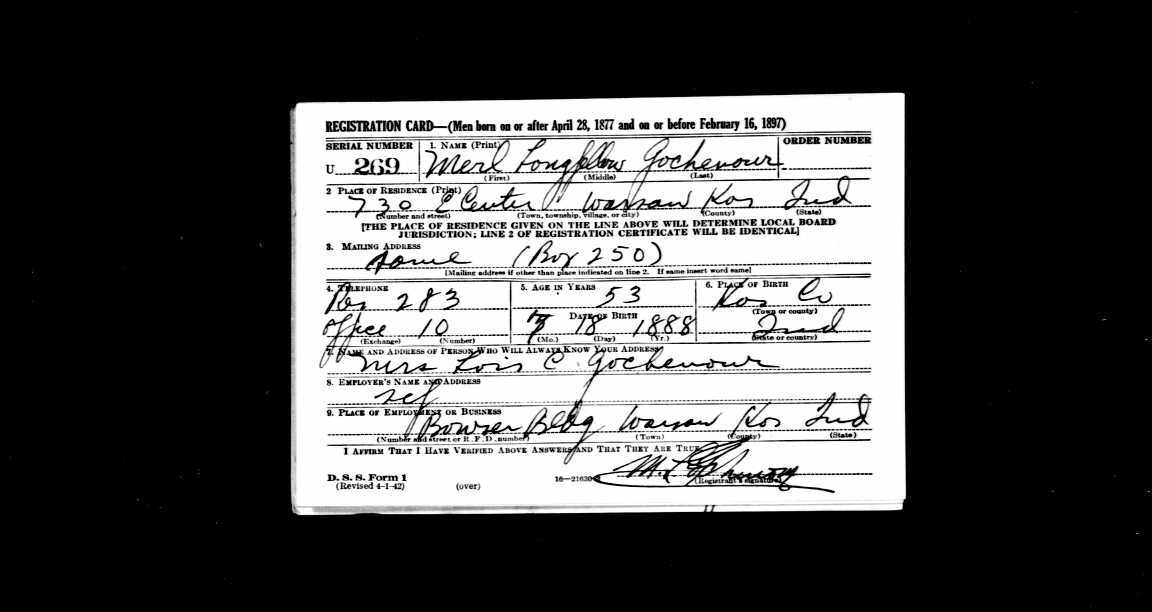 REGISTRATION CARD—(Men born on or after April 28, 1877 and on or before February 16, 1897)
SERIAL NUMBER 1. NAME (Print) ORDER NUMBER
U 269 Merl Longfellow Gochenour
(First) (Middle) (Last)
2 PLACE OF RESIDENCE (Print)
730 E Center Warsaw Kos Ind
(Number and street) (Town, township, village, or city) (County) (State)
[THE PLACE OF RESIDENCE GIVEN ON THE LINE ABOVE WILL DETERMINE LOCAL BOARD
JURISDICTION; LINE 2 OF REGISTRATION CERTIFICATE WILL BE IDENTICAL]
3. MAILING ADDRESS
Same (Box 250)
[Mailing address if other than place indicated on line 2. If same insert word same]
4. TELEPHONE 5. AGE IN YEARS 6. PLACE OF BIRTH
Res 283 53 Kos Co
DATE OF BIRTH (Town or county)
Office 10 18 1888 Ind
(Exchange) (Number) (Mo.) (Day) (Yr.) (State or country)
7. NAME AND ADDRESS OF PERSON WHO WILL ALWAYS KNOW YOUR ADDRESS
Mrs Lois C. Gochenour
8. EMPLOYER'S NAME AND ADDRESS
self
9. PLACE OF EMPLOYMENT OR BUSINESS
Bowser Bldg Warsaw Kos Ind
(Number and street or R. F. D. number) (Town) (County) (State)
I AFFIRM THAT I HAVE VERIFIED ABOVE ANSWERS AND THAT THEY ARE TRUE.
M. L. Gochenour
D. S. S. Form 1
(Revised 4-1-42) (over) 16—21630 (Registrant's signature)